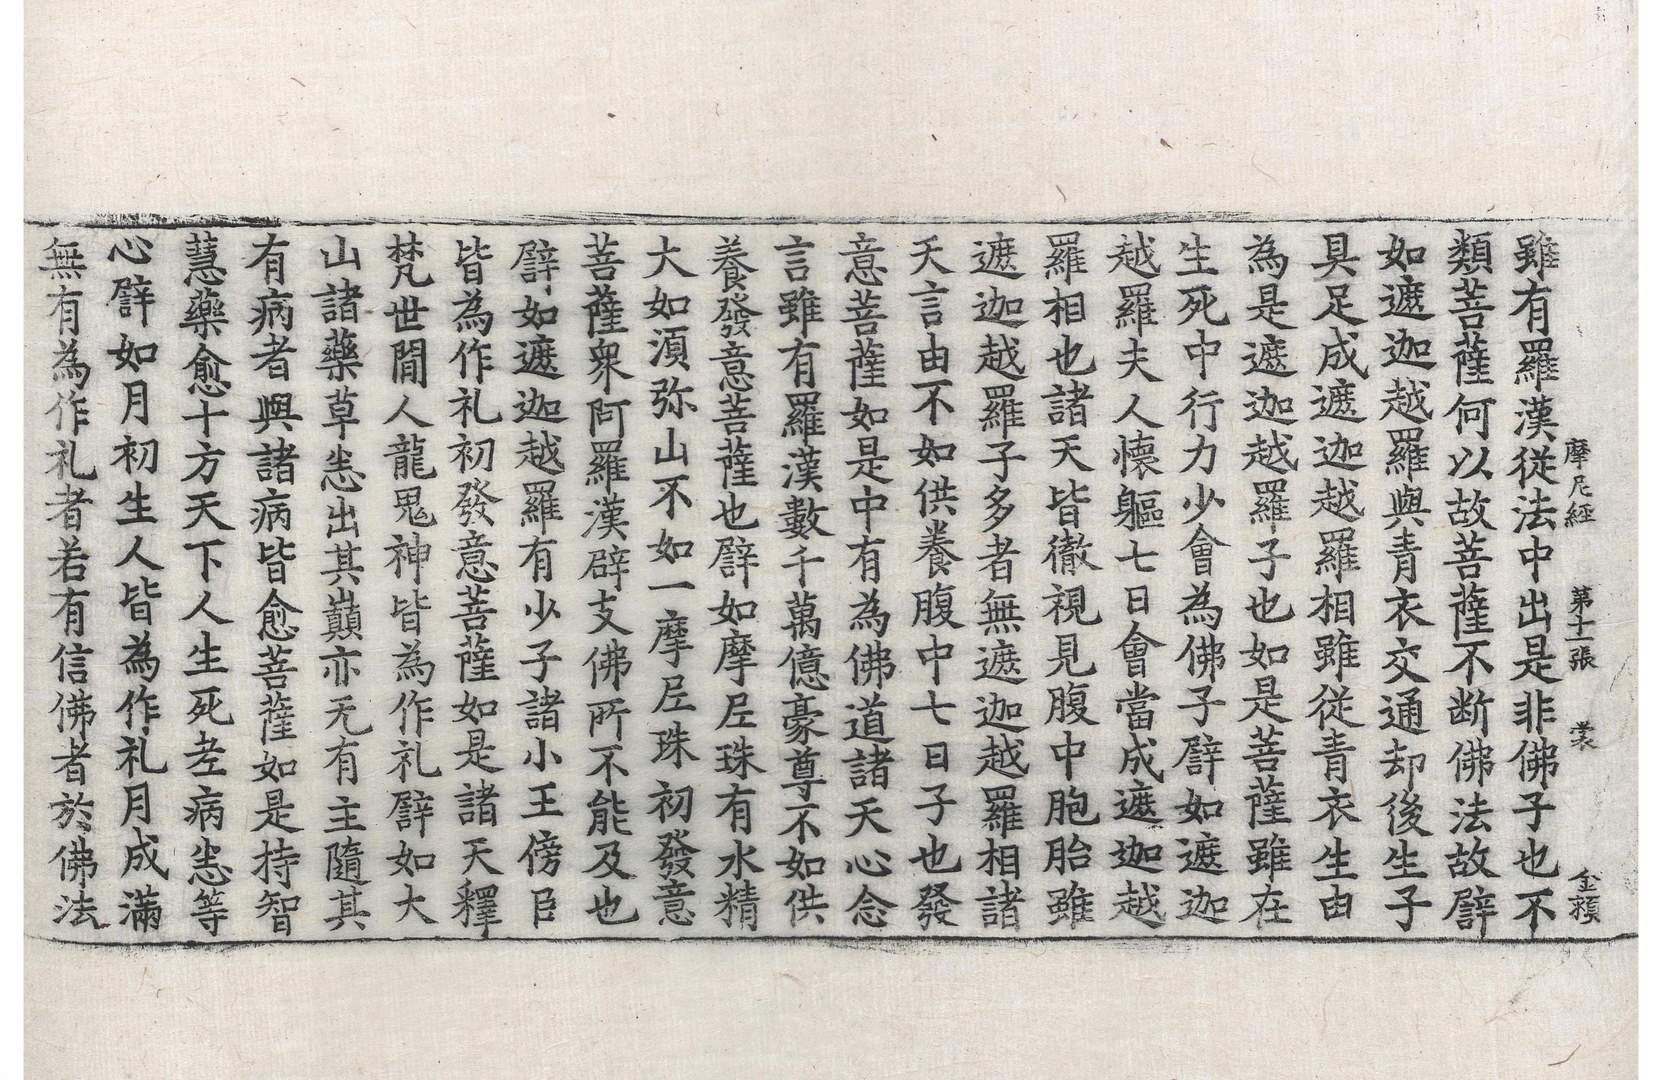 摩尼經 第十一張 裳 金積
雖有羅漢從法中出是非佛子也不
類菩薩何以故菩薩不断佛法故譬
如遮迦越羅與青衣交通却後生子
具足成遮迦越羅相雖従青衣生由
為是遮迦越羅子也如是菩薩雖在
生死中行力少會為佛子譬如遮迦
越羅夫人懐軀七日會當成遮迦越
羅相也諸天皆徹視見腹中胞胎雖
遮迦越羅子多者無遮迦越羅相諸
天言由不如供養腹中七日子也發
意菩薩如是中有為佛道諸天心念
言雖有羅漢數千萬億豪尊不如供
養發意菩薩也譬如摩尼珠有水精
大如湏弥山不如一摩尼珠初發意
菩薩衆阿羅漢辟支佛所不能及也
譬如遮迦越羅有少子諸小王傍臣
皆為作礼初發意菩薩如是諸天釋
梵世間人龍鬼神皆為作礼譬如大
山諸藥草悉出其巔亦无有主隨其
有病者與諸病皆愈菩薩如是持智
慧藥愈十方天下人生死老病悉等
心譬如月初生人皆為作礼月成滿
無有為作礼者若有信佛者於佛法